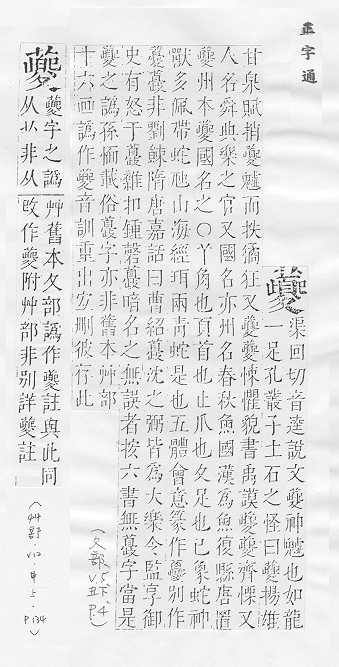 正字通
夔
渠回切音逵說文夔神魖也如龍
一足孔叢子土石之怪曰夔揚雄
甘泉賦捎夔魖而抶獝狂又夔夔悚懼貌書禹謨夔夔齊慄又
人名舜典樂之官又國名亦州名春秋魚國漢爲魚復縣唐置
夔州本夔國名之〇丫角也頁首也止爪也夂足也已象蛇神
獸多佩帶蛇虺山海經珥兩青蛇是也五體會意篆作夔別作
蘷蘷非劉餗隋唐嘉話曰曹紹夔沈之弼皆爲大樂令監享御
史有怒于夔雜扣鍾磬夔暗名之無誤者按六書無蘷字當是
夔之譌孫愐載俗蘷字亦非舊本艸部
十六畫譌作夔音訓重出宜刪彼存此
(夂部 V.5 丑下. P.4)
蘷
夔字之譌
从
非从
艸舊本夂部譌作夔註與此同
改作夔附艸部非別詳夔註
(艸部. V.12. 申上. P.134)